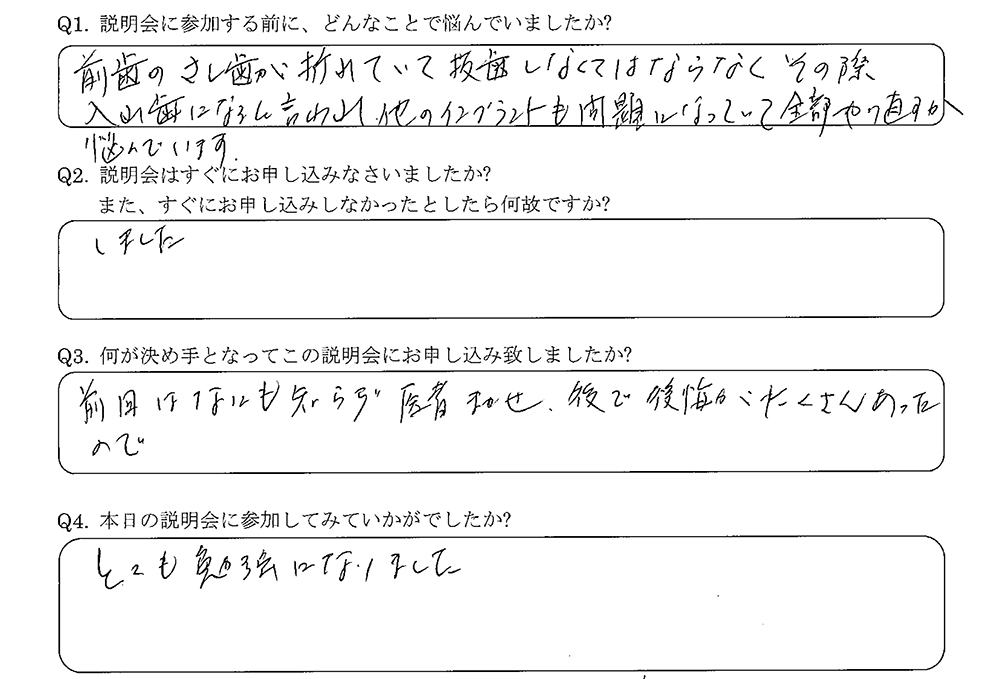 Q1. 説明会に参加する前に、どんなことで悩んでいましたか?
前歯のさし歯が折れていて抜歯しなくてはならなくその際
入れ歯になると言われ、他のインプラントも問題になっていて全部やり直すか、
悩んでいます。
Q2. 説明会はすぐにお申し込みなさいましたか?
また、すぐにお申し込みしなかったとしたら何故ですか?
しました
Q3. 何が決め手となってこの説明会にお申し込み致しましたか?
前回はなにも知らず医者まかせ、後で後悔がたくさんあった
ので
Q4. 本日の説明会に参加してみていかがでしたか?
とても勉強会になりました